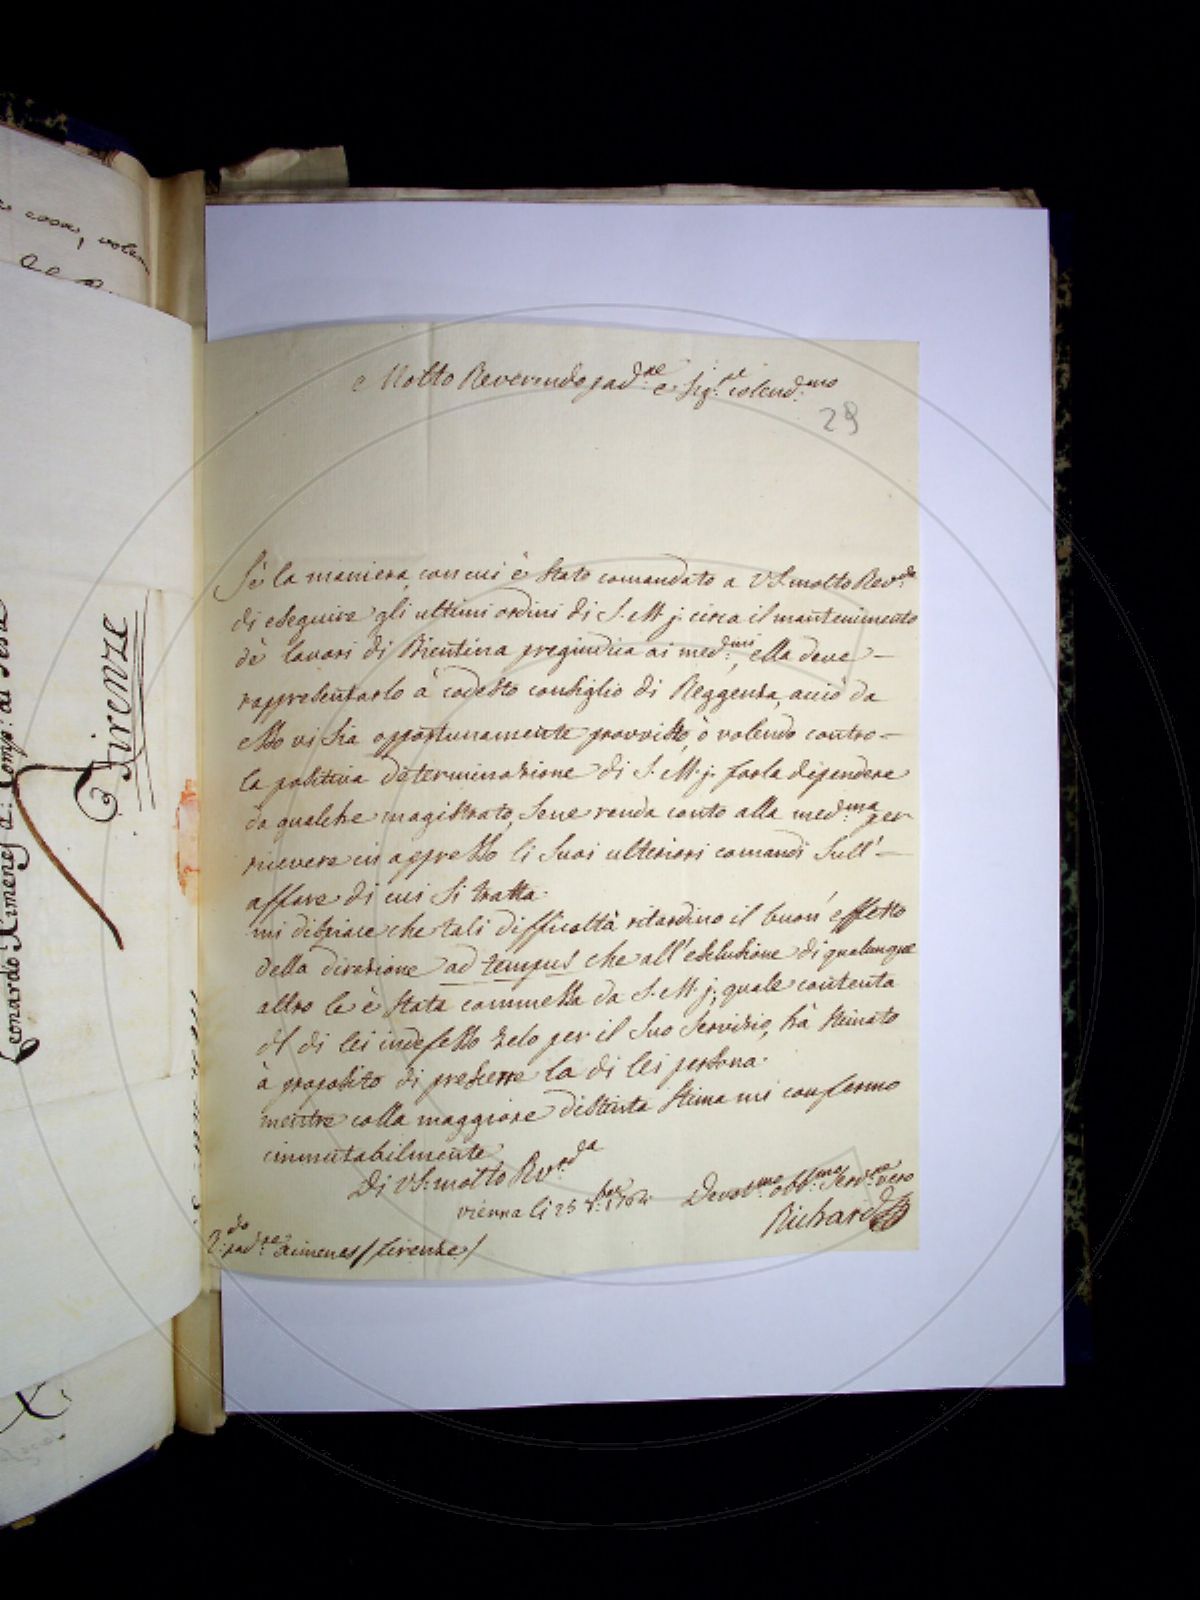 e cose, volen
Leonardo Ximenes d: Comp: di Gesù
Firenze
Molto Reverendo pad.re e Sig.re colend.mo
29
Sè la maniera, con cui è stato comandato a VS. molto Rev.da
di eseguire gli ultimi ordini di S. M. j. circa il mantenimento
dè lavori di Bientina pregiudica ai med.mi, ella deve
rappresentarlo à codesto consiglio di Reggenza, acciò da
esso vi sia opportunamente provvisto, ò volendo contro
la positiva determinazione di S. M. j. farla dipendere
da qualche magistrato, sene renda conto alla med.ma per
ricevere in appresso li suoi ulteriori comandi sull'
affare di cui si tratta.
mi dispiace che tali difficoltà ritardino il buon' effetto
della direzione ad tempus che all'esclusione di qualunque
altro le è stata commessa da S. M. j., quale contenta
del di lei indefesso zelo per il suo servizio, hà stimato
à proposito di prescierre la di lei persona.
mentre colla maggiore distinta stima mi confermo
immutabilmente
Di VS: molto Rev.da
vienna li 25 8.bre 1764 Devot.mo obb.mo Serv.re vero
Richard
R.do pad.re Ximenes / firenze /